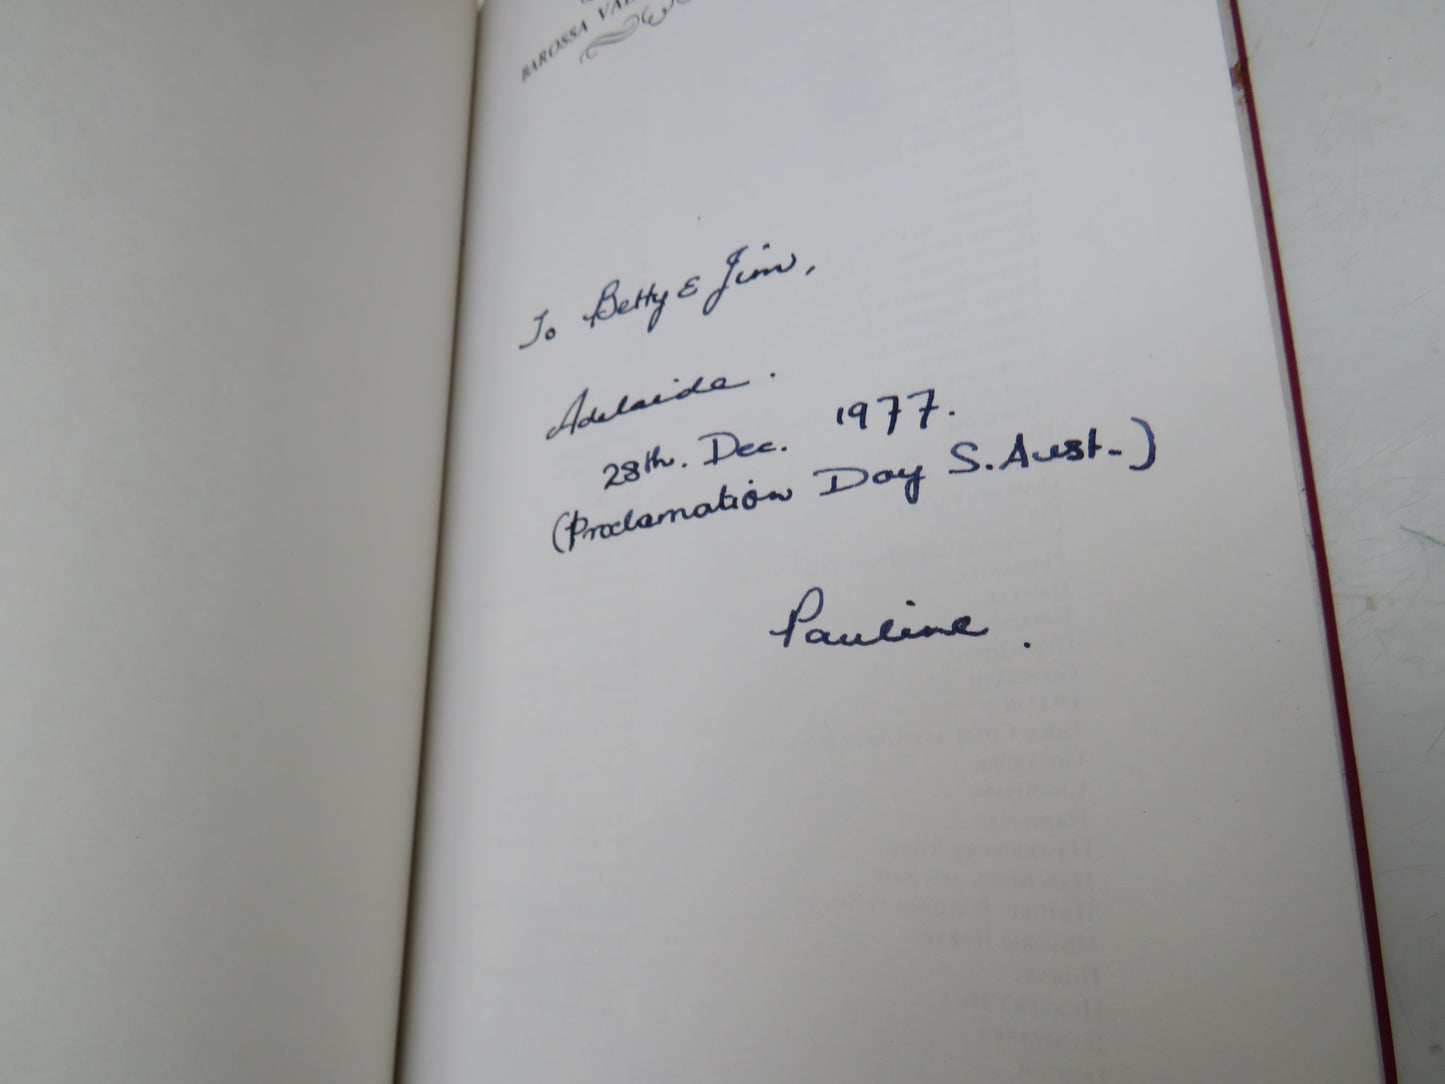 BAROSSA
To Betty & Jim,
Adelaide.
28th. Dec. 1977.
(Proclamation Day S. Aust.)
Pauline.